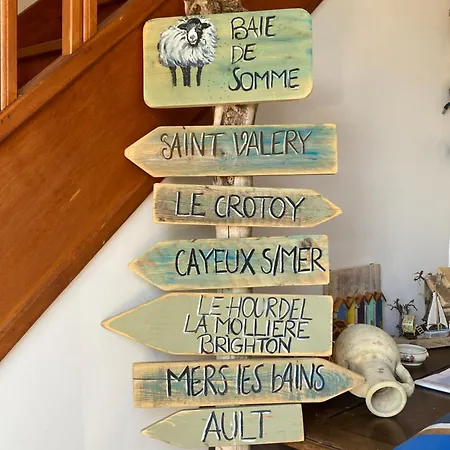 BAIE
DE
SOMME
SAINT VALERY
LE CROTOY
CAYEUX S/MER
LE HOURDEL
LA MOLLIÈRE
BRIGHTON
MERS lES bAINS
AULT